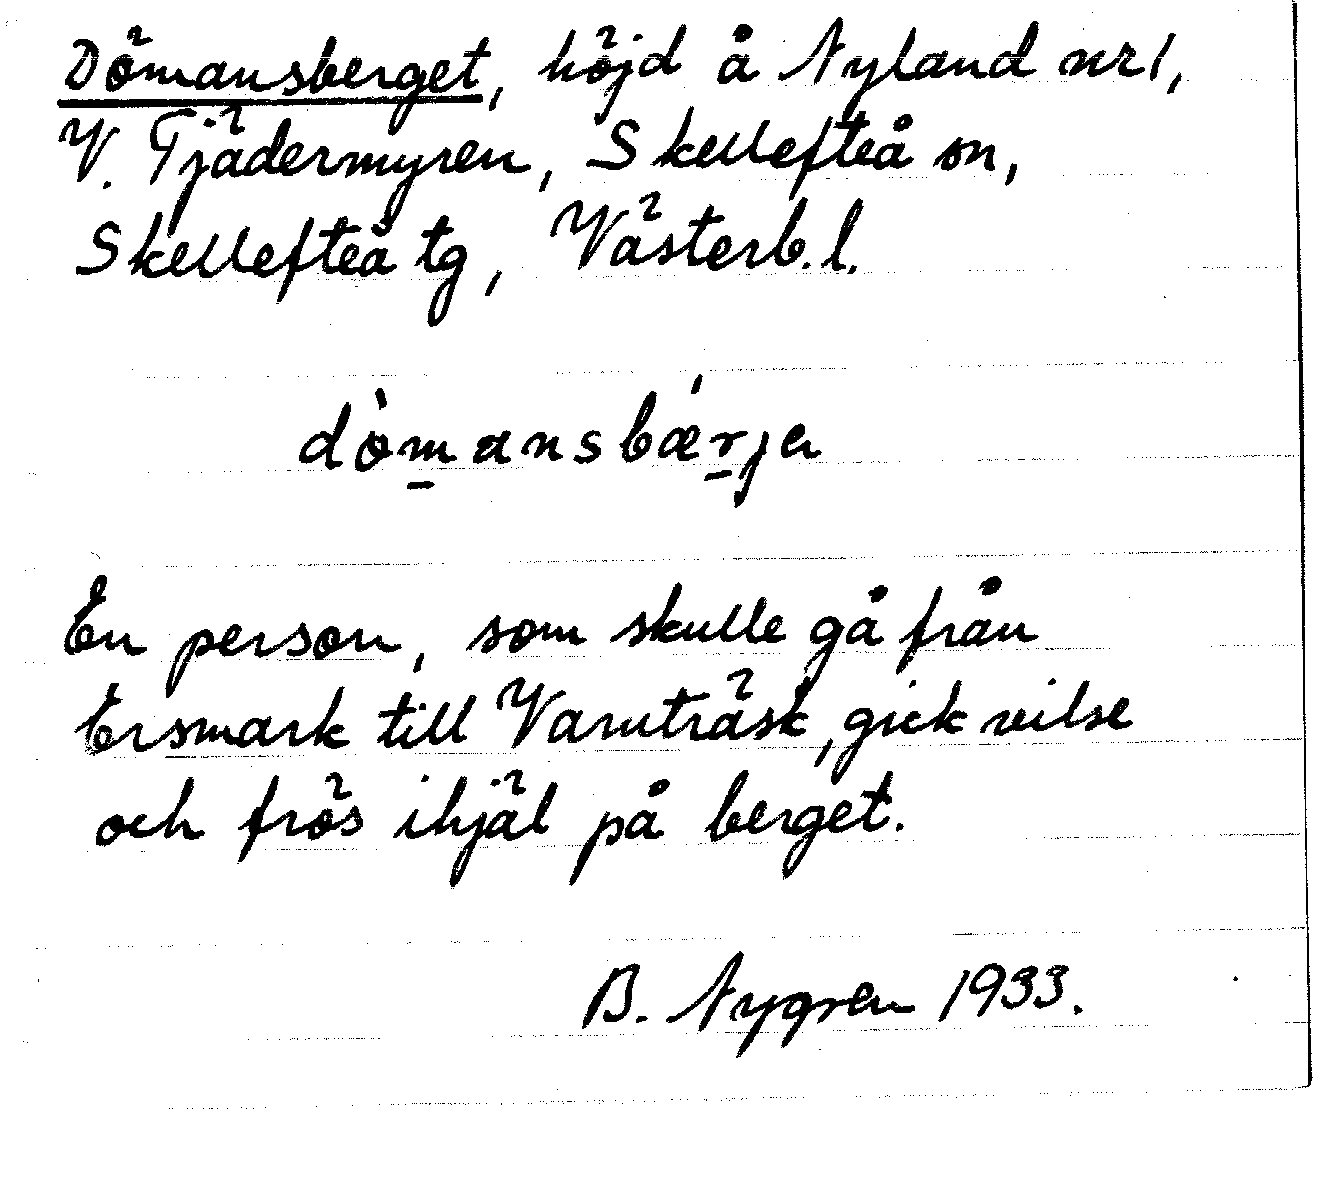 Dömansberget, höjd å Nyland nr 1,
V. Tjädermyren, Skellefteå sn,
Skellefteå tg, Västerb. l.
dòmansbǽrja
En person, som skulle gå från
Ersmark till Varuträsk, gick vilse
och frös ihjäl på berget.
B. Nygren 1933.